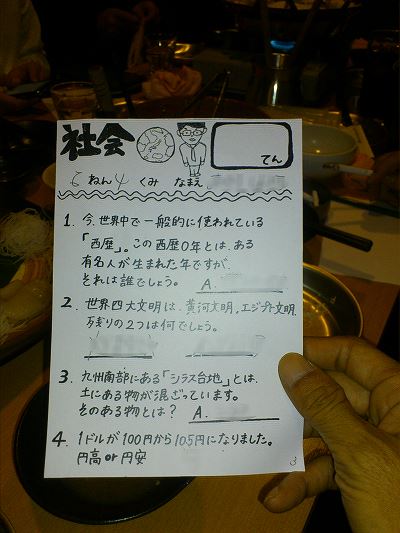 社会
てん
6 ねん 4 くみ なまえ
1. 今、世界中で一般的に使われている
「西歴」。この西歴0年とは、ある
有名人が生まれた年ですが、
それは誰でしょう。 A.
2. 世界四大文明は、黄河文明、エジプト文明、
残りの2つは何でしょう。
3. 九州南部にある「シラス台地」とは、
土にある物が混ざっています。
そのある物とは? A.
4. 1ドルが100円から105円になりました。
円高 or 円安
3